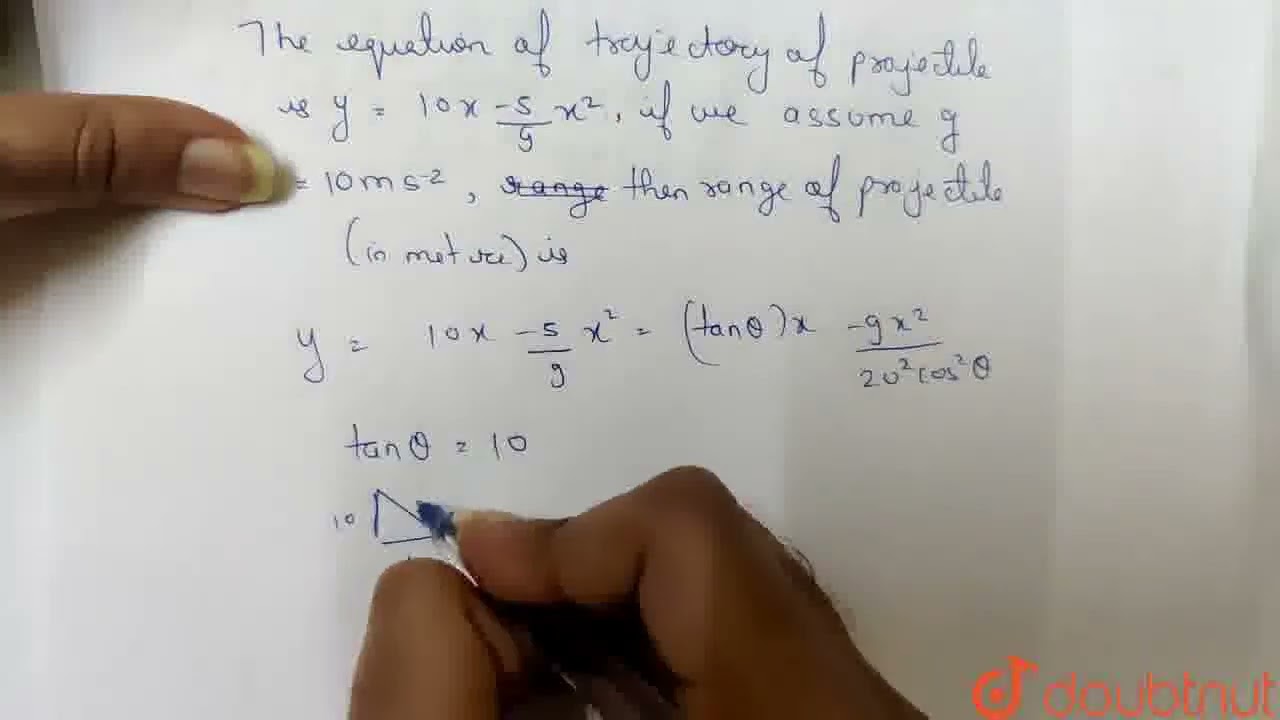 The equation of trajectory of projectile
is y = 10x - 5/9 x², if we assume g
= 10ms-², range then range of projectile
(in meture) is
y = 10x - 5/9 x² = (tanθ)x - gx²/2u²cos²θ
tanθ = 10
10
doubtnut